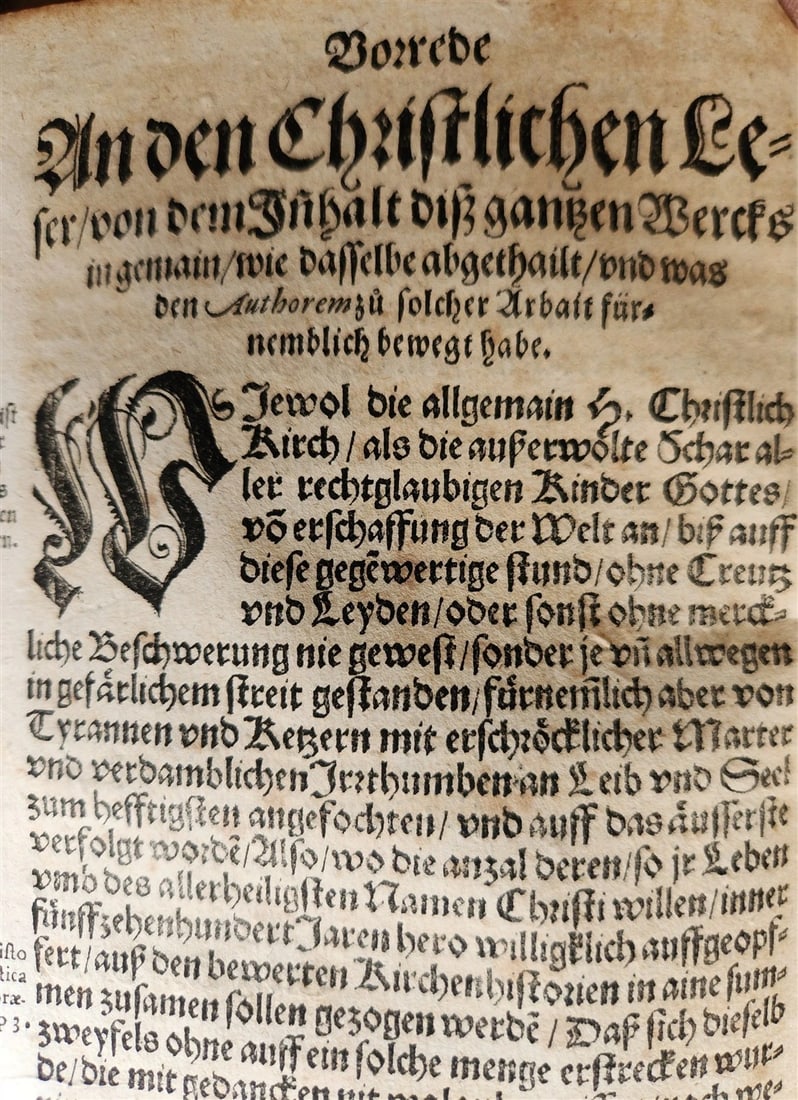 Vorrede
An den Christlichen Le-
ser/von dem Jñhalt diß gantzen Wercks
in gemain/wie dasselbe abgethailt/vnd was
den Authorem zů solcher Arbait für-
nemblich bewegt habe.
WJewol die allgemain H. Christlich
Kirch/als die außerwölte Schar al-
ler rechtglaubigen Kinder Gottes/
võ erschaffung der Welt an/biß auff
diese gegẽwertige stund/ohne Creutz
vnd Leyden/oder sonst ohne merck-
liche Beschwerung nie gewest/sonder je vñ allwegen
in gefärlichem streit gestanden/fürnem̃lich aber von
Tyrannen vnd Ketzern mit erschröcklicher Marter
vnd verdamblichen Jrrthumben an Leib vnd Seel
zum hefftigsten angefochten/vnd auff das äusserste
verfolgt wordẽ/Also/wo die anzal deren/so jr Leben
vmb des allerheiligsten Namen Christi willen/inner
fünffzehenhundert Jaren hero williglich auffgeopf-
fert/auß den bewerten Kirchenhistorien in aine sum-
men zusamen sollen gezogen werdẽ/Daß sich dieselb
zweyfels ohne auff ein solche menge erstrecken wur-
de/die mit gedancken nit